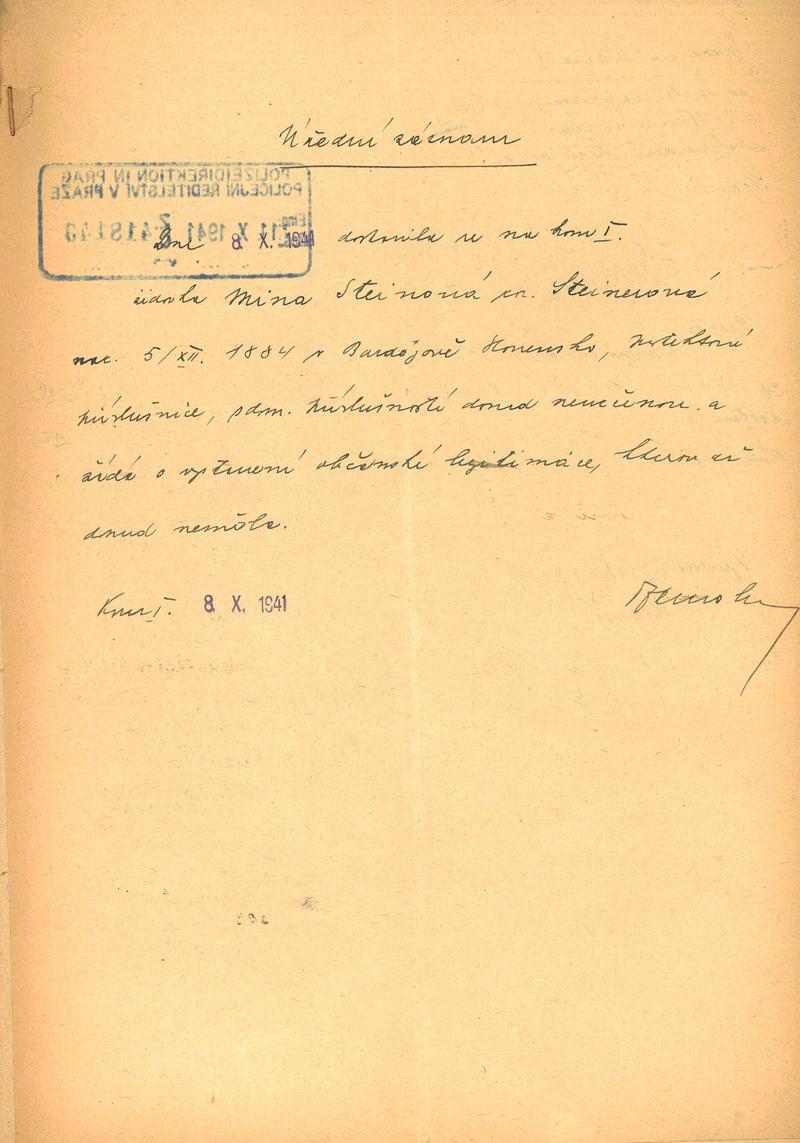 Úřední záznam
POLIZEIDIREKTION IN PRAG
POLICEJNÍ ŘEDITELSTVÍ V PRAZE
Eing. 11 X 1941
Dne 8. X. 1941 dostavila se na kom I.
židovka Mina Steinová roz. Steinerová
nar. 5/XII. 1884 v Bardějově Slovensko, protektorá
příslušnice, s dom. příslušností dosud neurčenou a
žádá o vystavení občanské legitimace, kterou až
dosud neměla.
Kom I. 8. X. 1941